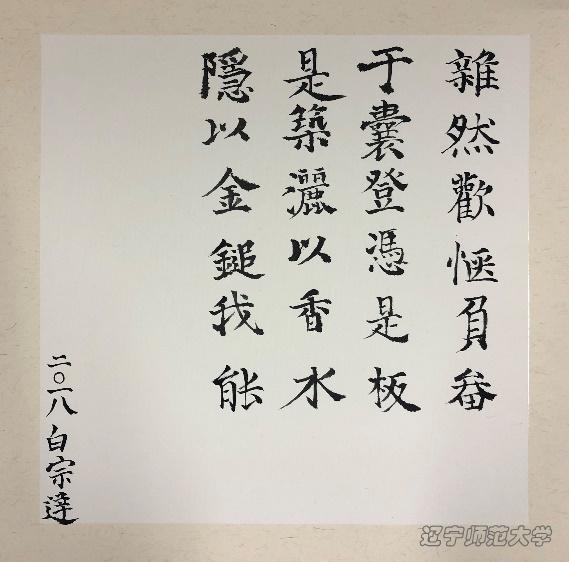 雜然歡愜負畚
于囊登憑是板
是築灑以香水
隱以金鎚我能
二〇一八白宗達
辽宁师范大学